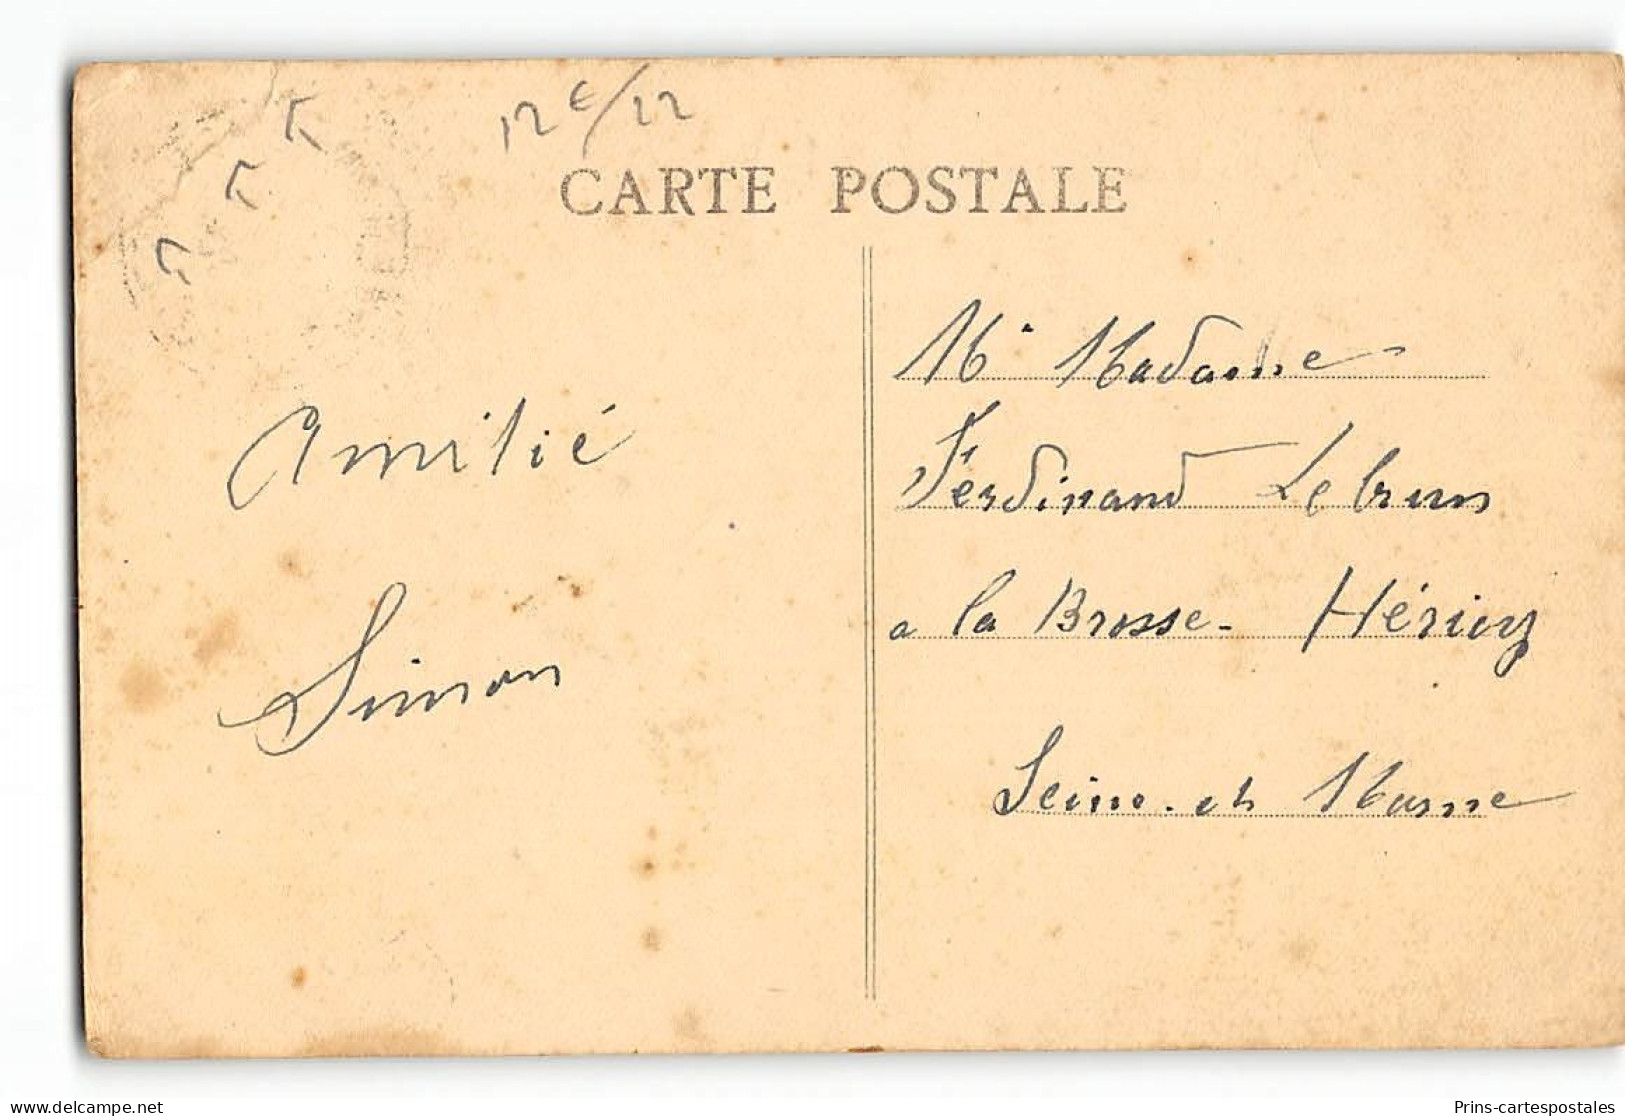 12€/22
CARTE POSTALE
Amitié
Simon
M. Madame
Ferdinand Lebrun
a la Brosse - Héricy
Seine - et Marne
delcampe.net
Prins-cartespostales